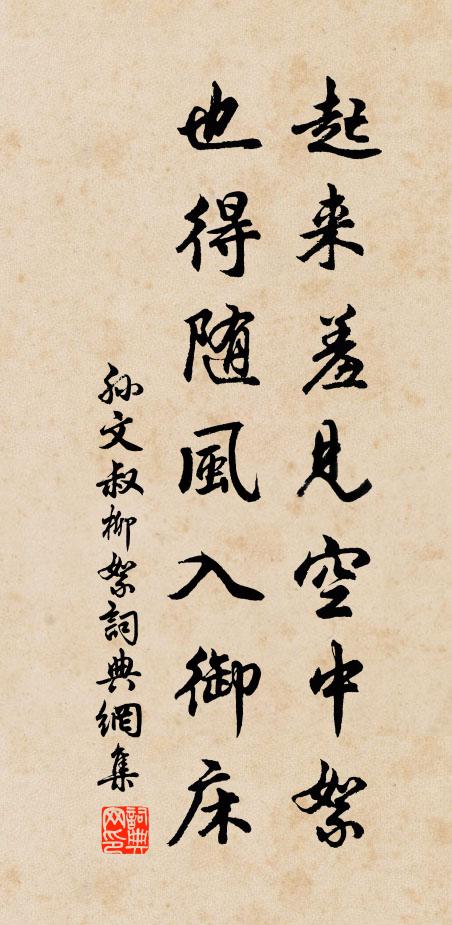 起来羞見空中絮
也得随風入御床
孫文叔柳絮詞典網集
詞典网印